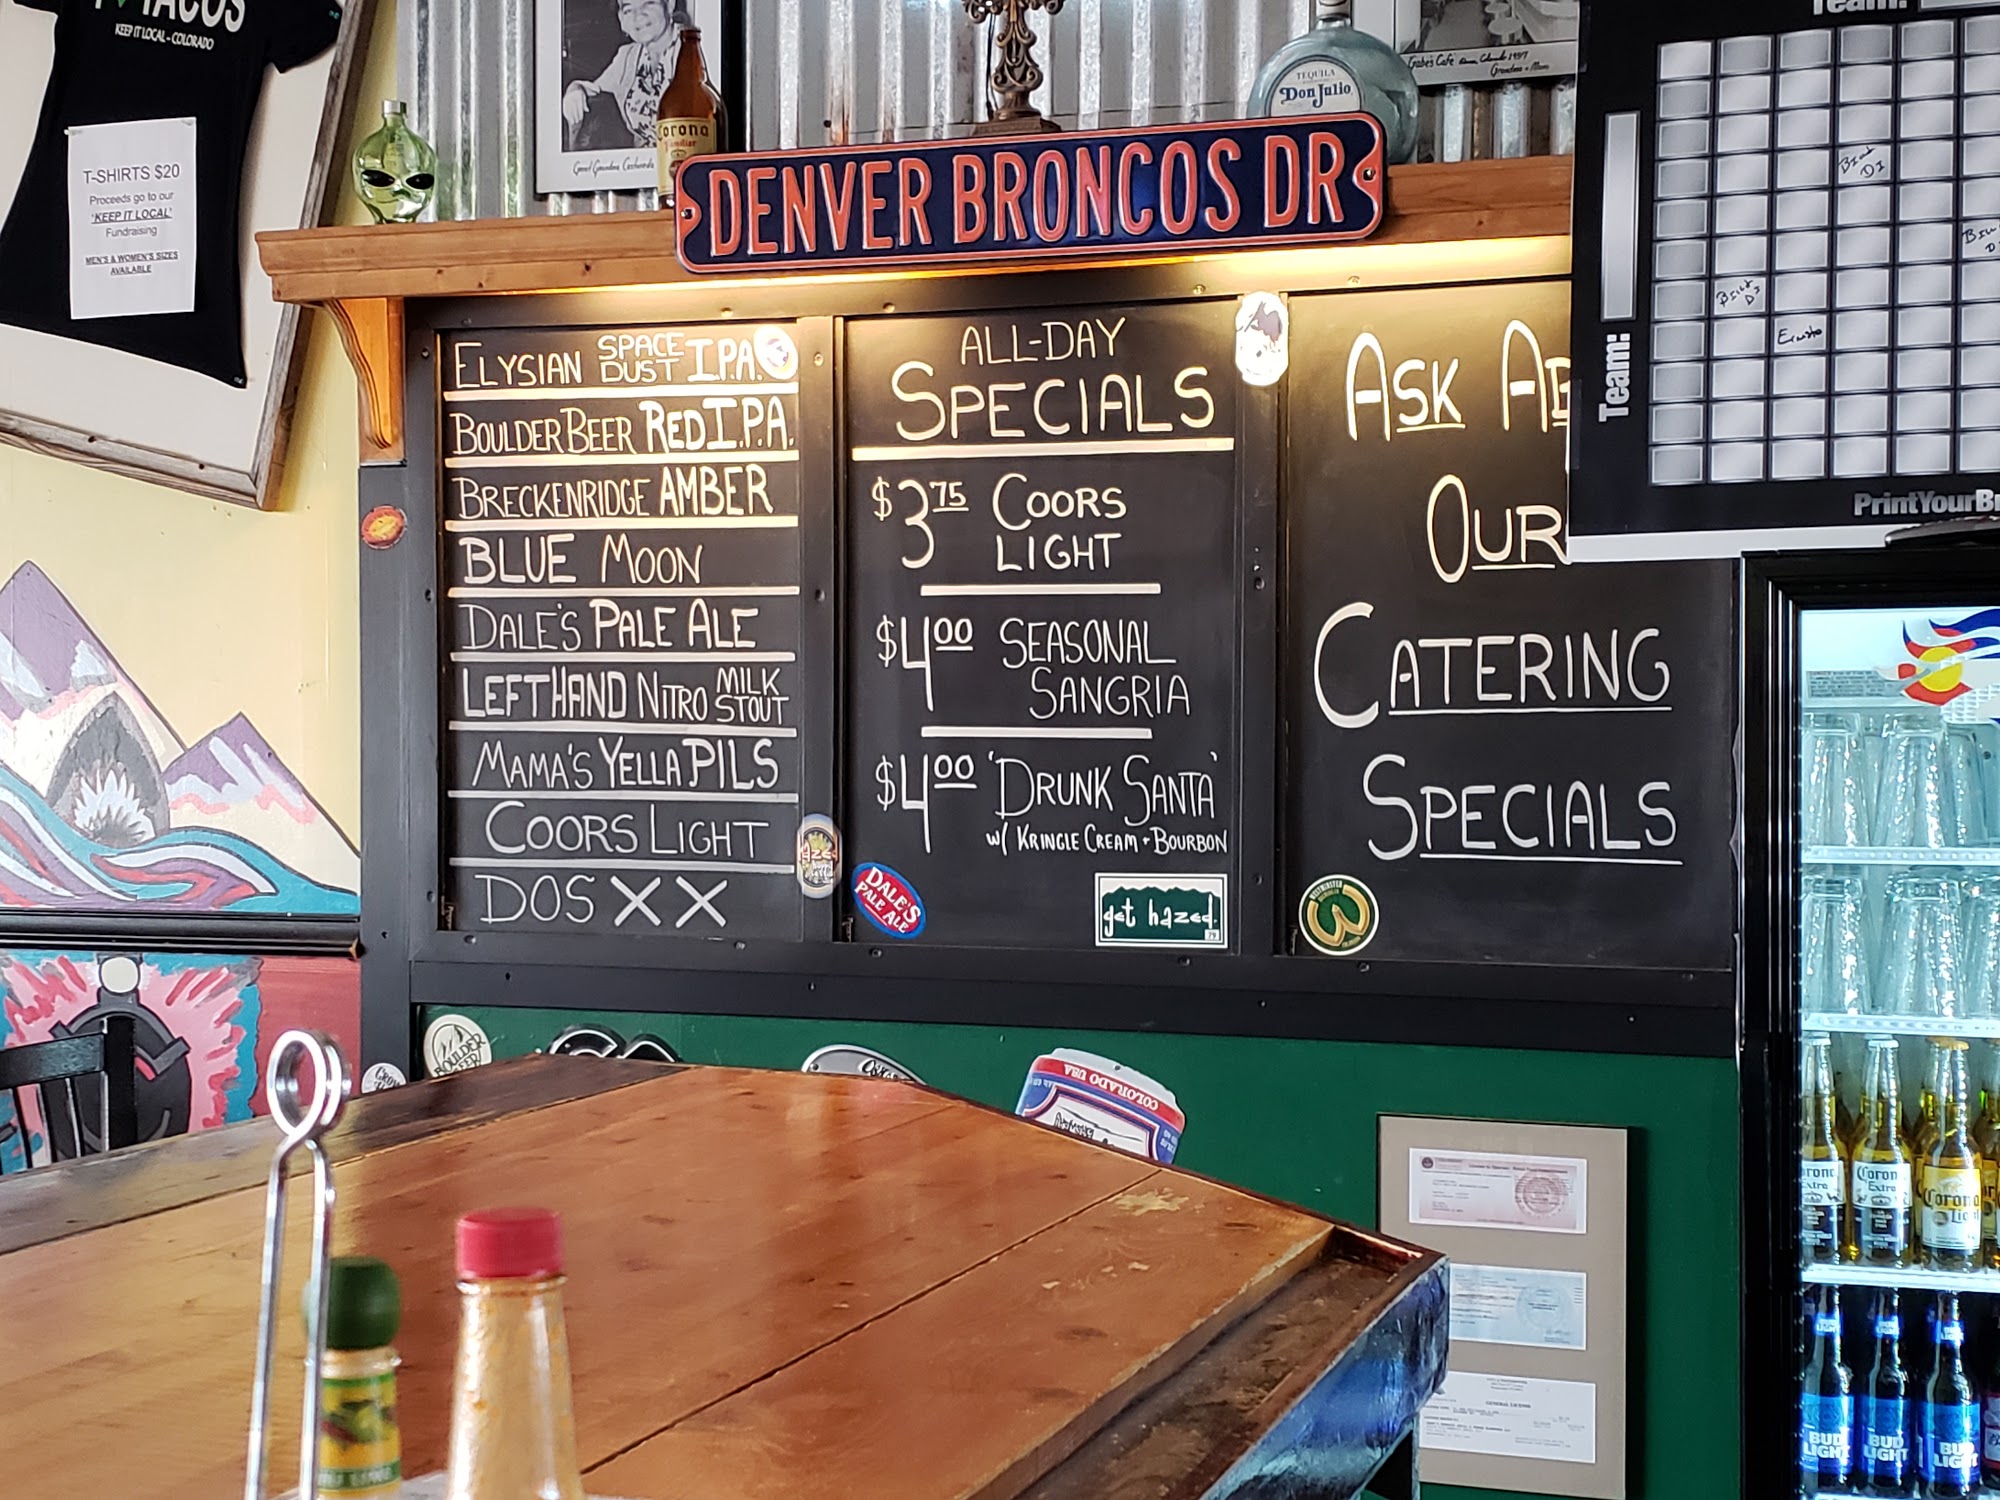 TACOS
KEEP IT LOCAL - COLORADO
T-SHIRTS $20
Proceeds go to our
'KEEP IT LOCAL'
Fundraising
MEN'S & WOMEN'S SIZES
AVAILABLE
Corona
Familiar
TEQUILA
Don Julio
Gabe's Café
Grandma + Mom
DENVER BRONCOS DR
ELYSIAN SPACE DUST I.P.A.
BOULDER BEER RED I.P.A.
BRECKENRIDGE AMBER
BLUE MOON
DALE'S PALE ALE
LEFTHAND NITRO MILK STOUT
MAMA'S YELLA PILS
COORS LIGHT
DOS XX
ALL-DAY
SPECIALS
$3.75 COORS
LIGHT
$4.00 SEASONAL
SANGRIA
$4.00 'DRUNK SANTA'
W/ KRINGLE CREAM + BOURBON
DALE'S
PALE ALE
get hazed
79
ASK AB
OUR
CATERING
SPECIALS
WESTMINSTER
Team:
Team:
Ernesto
PrintYourBr
BOULDER
BEER
COLORADO USA
GENERAL LICENSE
Corona
Extra
Corona
Extra
Corona
Light
BUD
LIGHT
BUD
LIGHT
BUD
LIGHT